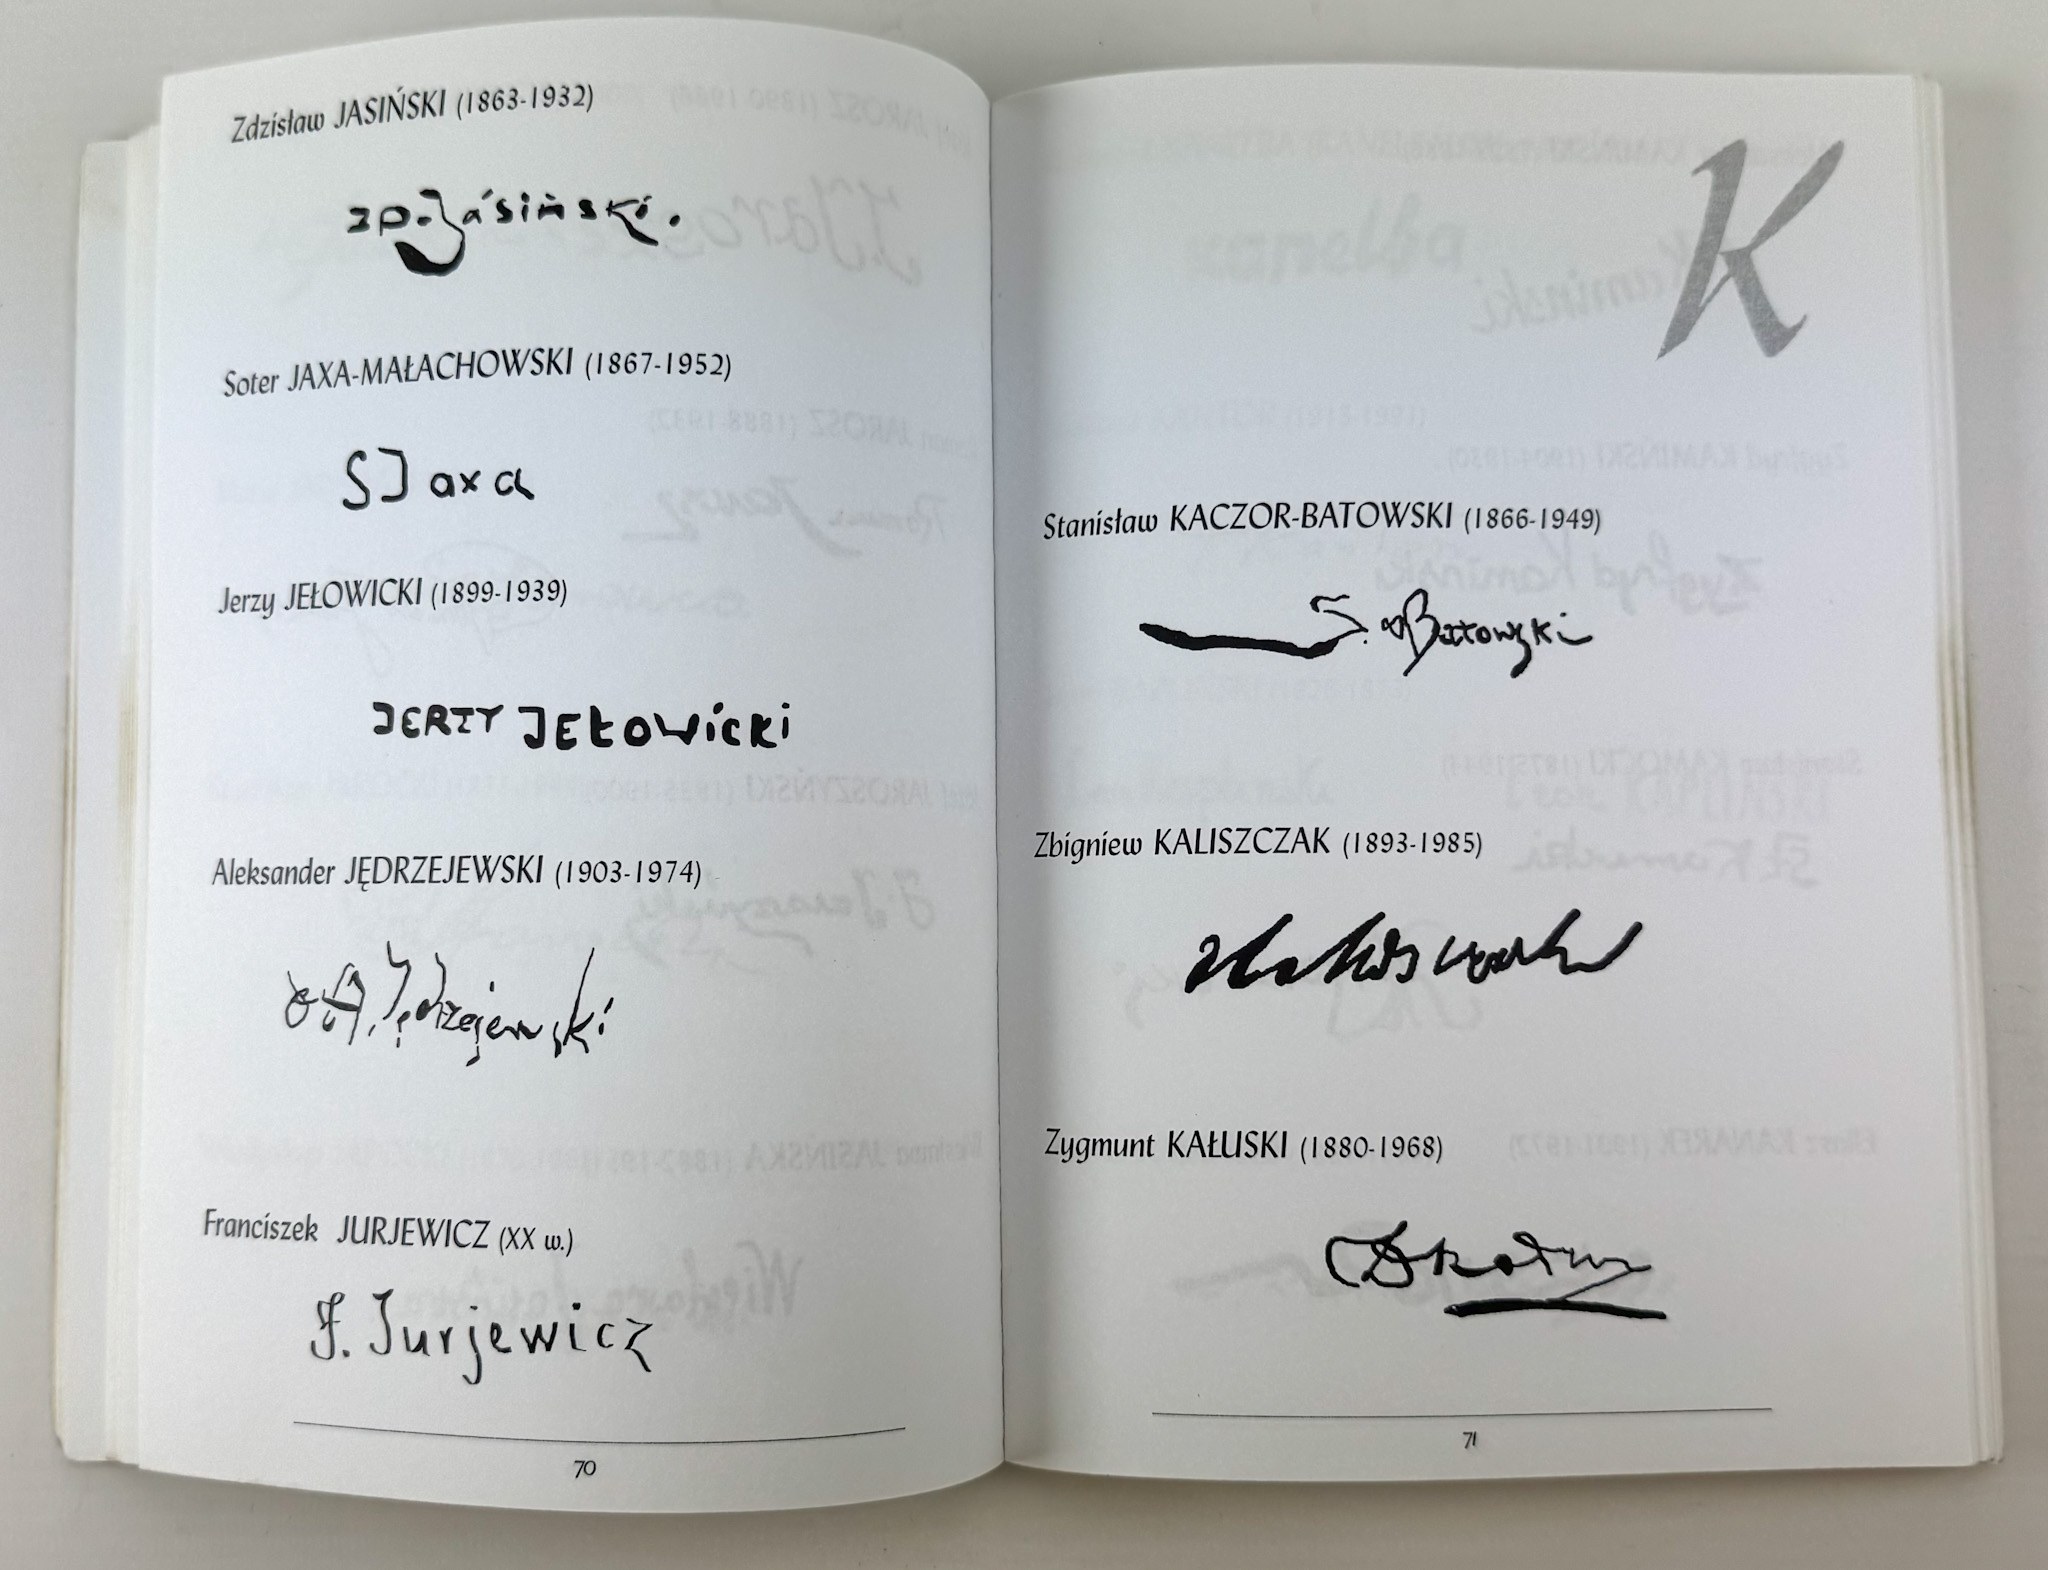 Zdzisław JASIŃSKI (1863-1932)
ZD. Jasiński.
Soter JAXA-MAŁACHOWSKI (1867-1952)
SJaxa
Jerzy JEŁOWICKI (1899-1939)
JERZY JEŁOWicki
Aleksander JĘDRZEJEWSKI (1903-1974)
Jędrzejewski
Franciszek JURJEWICZ (XX w.)
F. Jurjewicz
70
K
Stanisław KACZOR-BATOWSKI (1866-1949)
S. Batowski
Zbigniew KALISZCZAK (1893-1985)
Zygmunt KAŁUSKI (1880-1968)
71